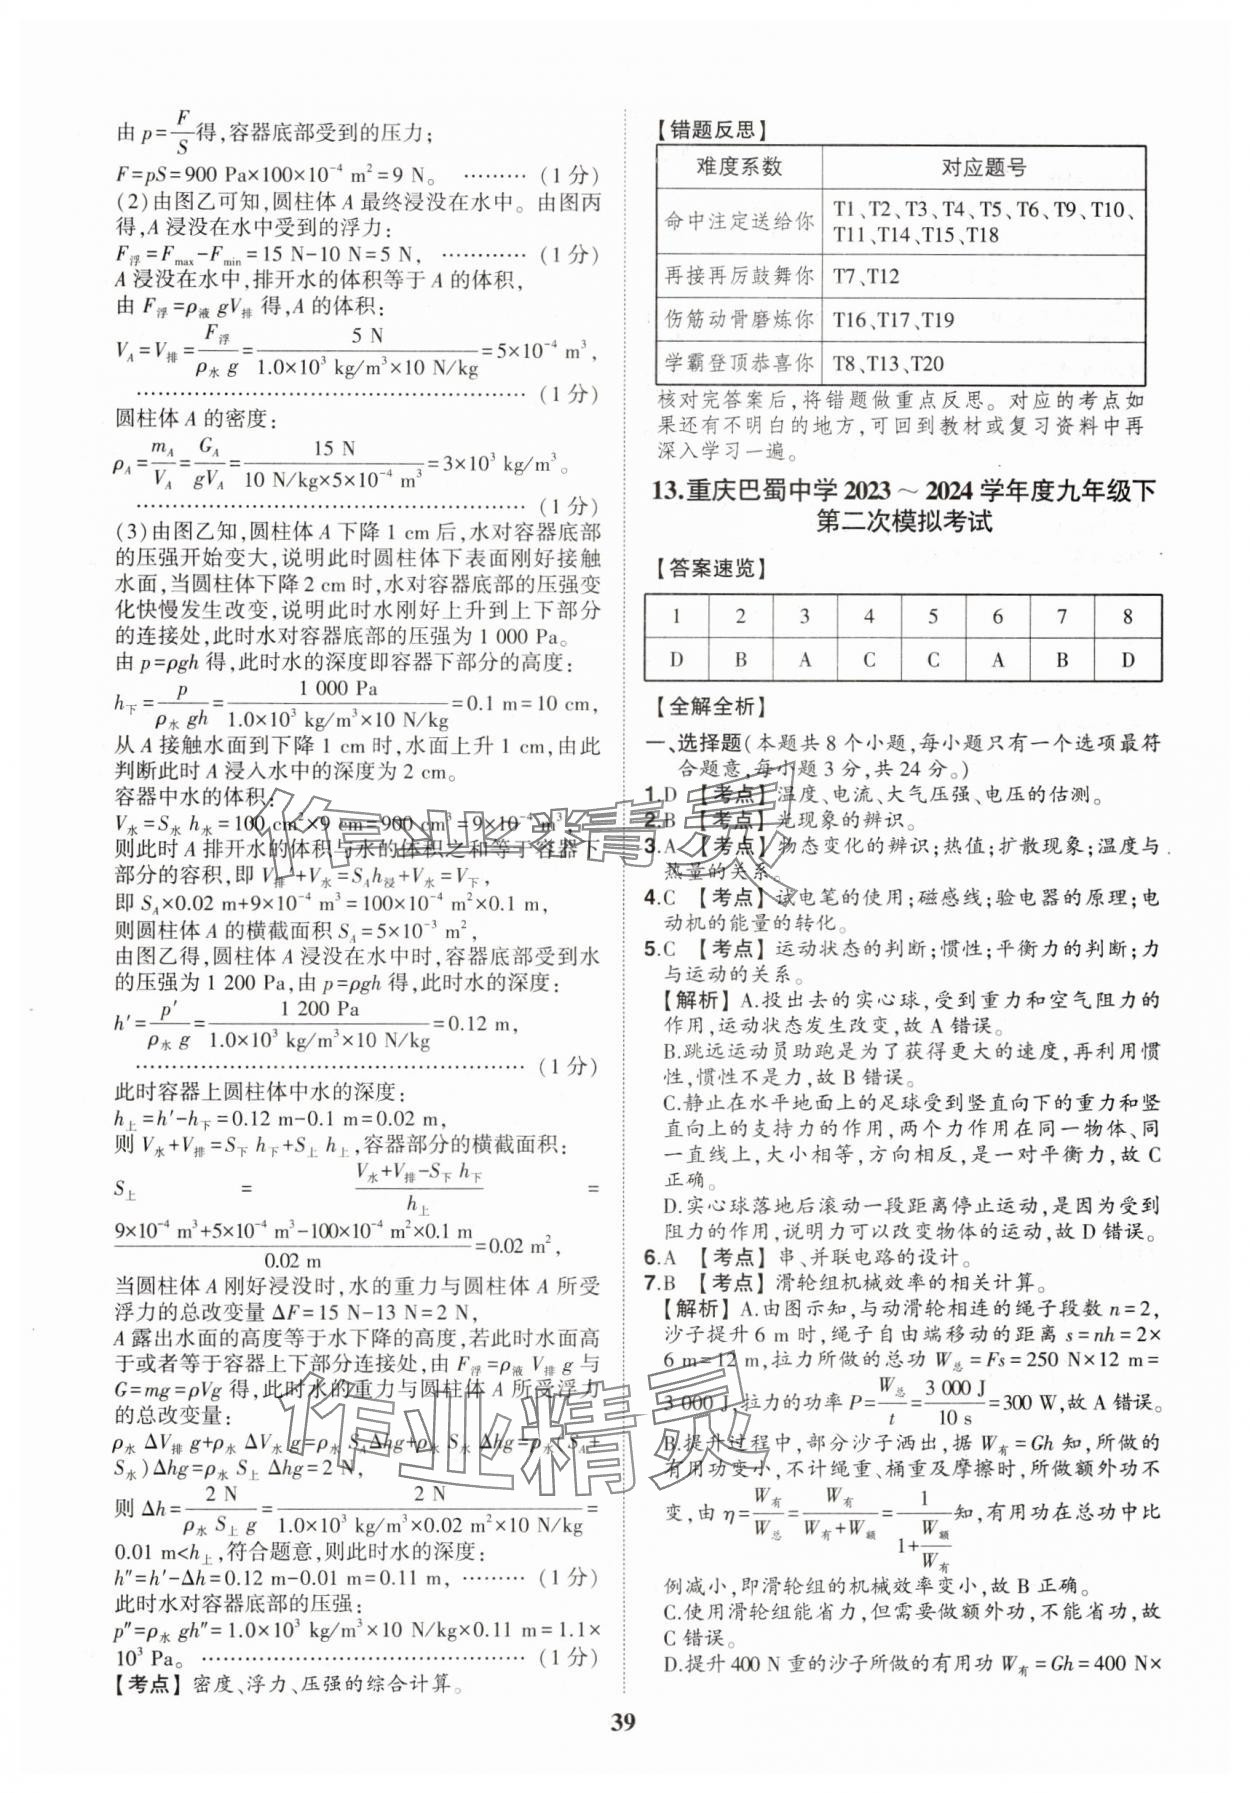 由 p=F/S得,容器底部受到的压力;
F=pS=900 Pa×100×10⁻⁴ m²=9 N。 ………(1分)
(2)由图乙可知,圆柱体 A 最终浸没在水中。由图丙
得,A 浸没在水中受到的浮力:
F浮=Fmax-Fmin=15 N-10 N=5 N, …………(1分)
A 浸没在水中,排开水的体积等于 A 的体积,
由 F浮=ρ液 gV排 得,A 的体积:
V_A=V排=F浮/(ρ水 g)=5 N/(1.0×10³ kg/m³×10 N/kg)=5×10⁻⁴ m³,
……………………………………………(1分)
圆柱体 A 的密度:
ρ_A=m_A/V_A=G_A/(gV_A)=15 N/(10 N/kg×5×10⁻⁴ m³)=3×10³ kg/m³。
……………………………………………(1分)
(3)由图乙知,圆柱体 A 下降 1 cm 后,水对容器底部
的压强开始变大,说明此时圆柱体下表面刚好接触
水面,当圆柱体下降 2 cm 时,水对容器底部的压强变
化快慢发生改变,说明此时水刚好上升到上下部分
的连接处,此时水对容器底部的压强为 1 000 Pa。
由 p=ρgh 得,此时水的深度即容器下部分的高度:
h下=p/(ρ水 gh)=1 000 Pa/(1.0×10³ kg/m³×10 N/kg)=0.1 m=10 cm,
从 A 接触水面到下降 1 cm 时,水面上升 1 cm,由此
判断此时 A 浸入水中的深度为 2 cm。
容器中水的体积:
V水=S水 h水=100 cm²×9 cm=900 cm³=9×10⁻⁴ m³,
则此时 A 排开水的体积与水的体积之和等于容器下
部分的容积,即 V排+V水=S_A h浸+V水=V下,
即 S_A×0.02 m+9×10⁻⁴ m³=100×10⁻⁴ m²×0.1 m,
则圆柱体 A 的横截面积 S_A=5×10⁻³ m²,
由图乙得,圆柱体 A 浸没在水中时,容器底部受到水
的压强为 1 200 Pa,由 p=ρgh 得,此时水的深度:
h′=p′/(ρ水 g)=1 200 Pa/(1.0×10³ kg/m³×10 N/kg)=0.12 m,
……………………………………………(1分)
此时容器上圆柱体中水的深度:
h上=h′-h下=0.12 m-0.1 m=0.02 m,
则 V水+V排=S下 h下+S上 h上,容器部分的横截面积:
S上=(V水+V排-S下 h下)/h上=
(9×10⁻⁴ m³+5×10⁻⁴ m³-100×10⁻⁴ m²×0.1 m)/0.02 m=0.02 m²,
当圆柱体 A 刚好浸没时,水的重力与圆柱体 A 所受
浮力的总改变量 ΔF=15 N-13 N=2 N,
A 露出水面的高度等于水下降的高度,若此时水面高
于或者等于容器上下部分连接处,由 F浮=ρ液 V排 g 与
G=mg=ρVg 得,此时水的重力与圆柱体 A 所受浮力
的总改变量:
ρ水 ΔV排 g+ρ水 ΔV水 g=ρ水 S_AΔhg+ρ水 S水 Δhg=ρ水(S_A+
S水)Δhg=ρ水 S上 Δhg=2 N,
则 Δh=2 N/(ρ水 S上 g)=2 N/(1.0×10³ kg/m³×0.02 m²×10 N/kg)=
0.01 m<h上,符合题意,则此时水的深度:
h″=h′-Δh=0.12 m-0.01 m=0.11 m, ………(1分)
此时水对容器底部的压强:
p″=ρ水 gh″=1.0×10³ kg/m³×10 N/kg×0.11 m=1.1×
10³ Pa。 ……………………………………(1分)
【考点】密度、浮力、压强的综合计算。
【错题反思】
难度系数 对应题号
命中注定送给你 T1、T2、T3、T4、T5、T6、T9、T10、
T11、T14、T15、T18
再接再厉鼓舞你 T7、T12
伤筋动骨磨炼你 T16、T17、T19
学霸登顶恭喜你 T8、T13、T20
核对完答案后,将错题做重点反思。对应的考点如
果还有不明白的地方,可回到教材或复习资料中再
深入学习一遍。
13.重庆巴蜀中学 2023～2024 学年度九年级下
第二次模拟考试
【答案速览】
1 2 3 4 5 6 7 8
D B A C C A B D
【全解全析】
一、选择题(本题共 8 个小题,每小题只有一个选项最符
合题意,每小题 3 分,共 24 分。)
1.D 【考点】温度、电流、大气压强、电压的估测。
2.B 【考点】光现象的辨识。
3.A 【考点】物态变化的辨识;热值;扩散现象;温度与
热量的关系。
4.C 【考点】试电笔的使用;磁感线;验电器的原理;电
动机的能量的转化。
5.C 【考点】运动状态的判断;惯性;平衡力的判断;力
与运动的关系。
【解析】A.投出去的实心球,受到重力和空气阻力的
作用,运动状态发生改变,故 A 错误。
B.跳远运动员助跑是为了获得更大的速度,再利用惯
性,惯性不是力,故 B 错误。
C.静止在水平地面上的足球受到竖直向下的重力和竖
直向上的支持力的作用,两个力作用在同一物体、同
一直线上,大小相等,方向相反,是一对平衡力,故 C
正确。
D.实心球落地后滚动一段距离停止运动,是因为受到
阻力的作用,说明力可以改变物体的运动,故 D 错误。
6.A 【考点】串、并联电路的设计。
7.B 【考点】滑轮组机械效率的相关计算。
【解析】A.由图示知,与动滑轮相连的绳子段数 n=2,
沙子提升 6 m 时,绳子自由端移动的距离 s=nh=2×
6 m=12 m,拉力所做的总功 W总=Fs=250 N×12 m=
3 000 J,拉力的功率 P=W总/t=3 000 J/10 s=300 W,故 A 错误。
B.提升过程中,部分沙子洒出,据 W有=Gh 知,所做的
有用功变小,不计绳重、桶重及摩擦时,所做额外功不
变,由 η=W有/W总=W有/(W有+W额)=1/(1+W额/W有)知,有用功在总功中比
例减小,即滑轮组的机械效率变小,故 B 正确。
C.使用滑轮组能省力,但需要做额外功,不能省功,故
C 错误。
D.提升 400 N 重的沙子所做的有用功 W有=Gh=400 N×
39
作业精灵
作业精灵